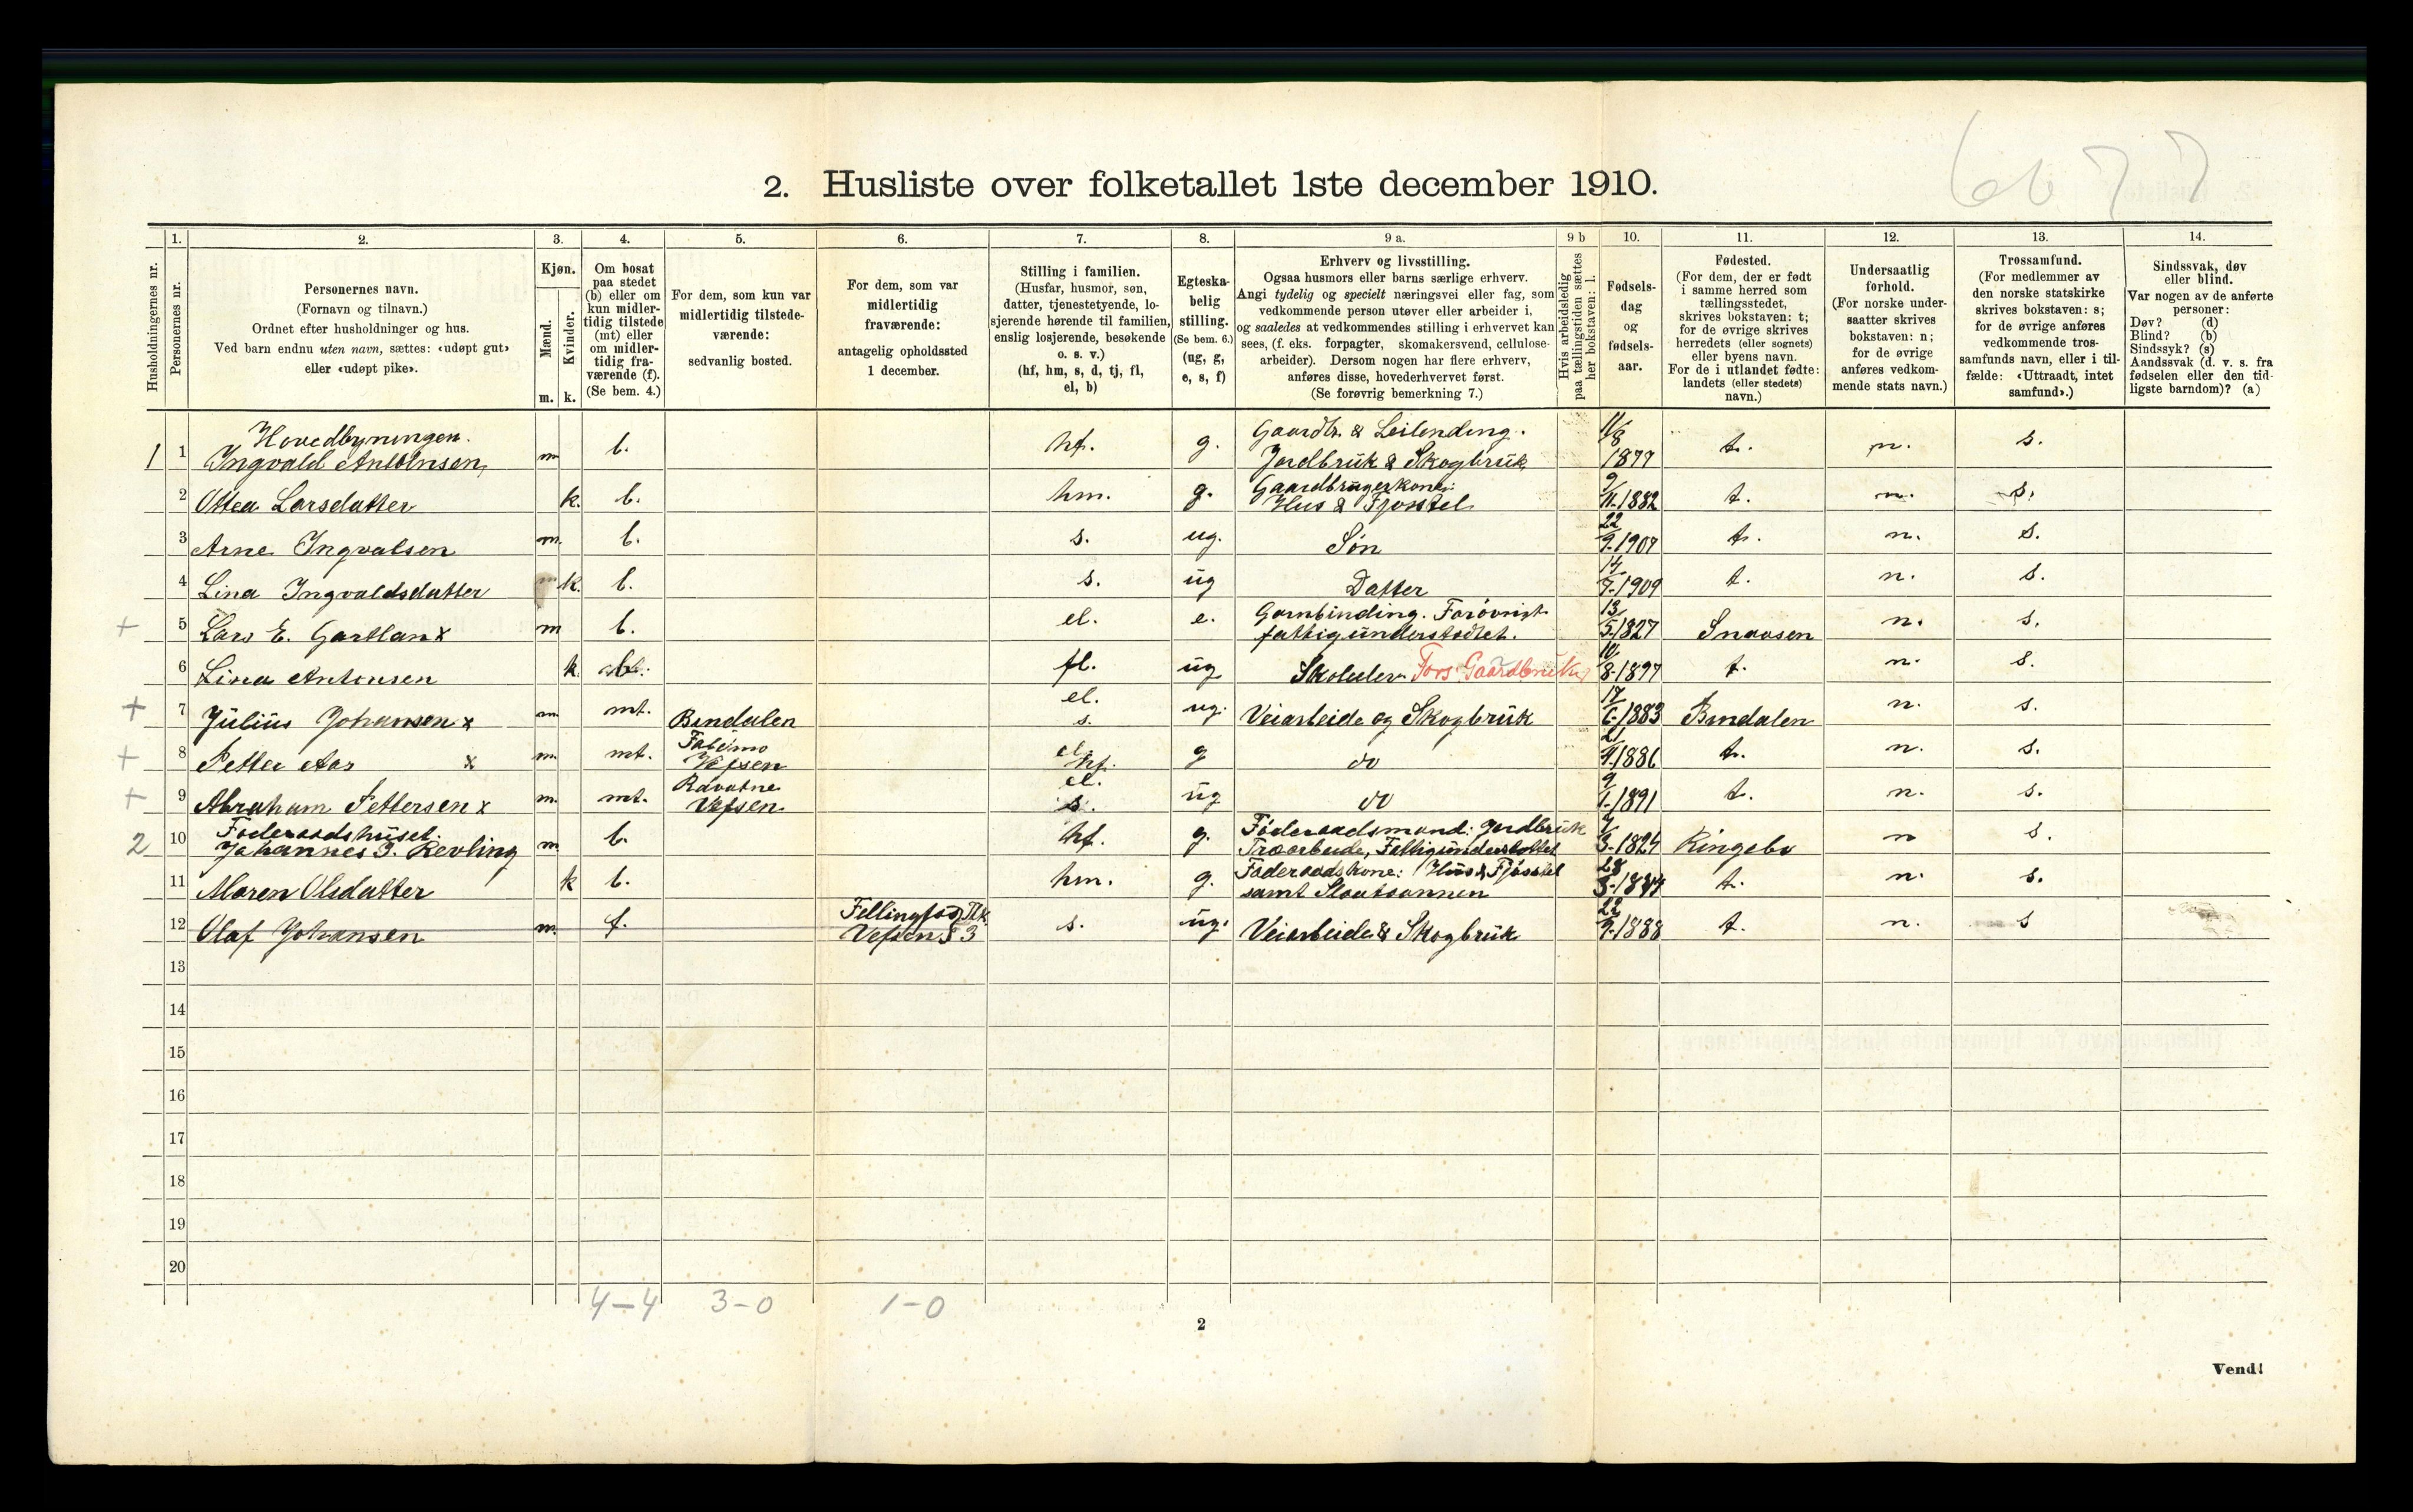 6b 77
2. Husliste over folketallet 1ste december 1910.
Husholdningernes nr.
1. Personernes nr.
2. Personernes navn.
(Fornavn og tilnavn.)
Ordnet efter husholdninger og hus.
Ved barn endnu uten navn, sættes: «udøpt gut»
eller «udøpt pike».
3. Kjøn.
Mænd. m.
Kvinder. k.
4. Om bosat
paa stedet
(b) eller om
kun midler-
tidig tilstede
(mt) eller
om midler-
tidig fra-
værende (f).
(Se bem. 4.)
5. For dem, som kun var
midlertidig tilstede-
værende:
sedvanlig bosted.
6. For dem, som var
midlertidig
fraværende:
antagelig opholdssted
1 december.
7. Stilling i familien.
(Husfar, husmor, søn,
datter, tjenestetyende, lo-
sjerende hørende til familien,
enslig losjerende, besøkende
o. s. v.)
(hf, hm, s, d, tj, fl,
el, b)
8. Egteska-
belig
stilling.
(Se bem. 6.)
(ug, g,
e, s, f)
9 a. Erhverv og livsstilling.
Ogsaa husmors eller barns særlige erhverv.
Angi tydelig og specielt næringsvei eller fag, som
vedkommende person utøver eller arbeider i,
og saaledes at vedkommendes stilling i erhvervet kan
sees, (f. eks. forpagter, skomakersvend, cellulose-
arbeider). Dersom nogen har flere erhverv,
anføres disse, hovederhvervet først.
(Se forøvrig bemerkning 7.)
9 b Hvis arbeidsledig
paa tællingstiden sættes
her bokstaven: l.
10. Fødsels-
dag
og
fødsels-
aar.
11. Fødested.
(For dem, der er født
i samme herred som
tællingsstedet,
skrives bokstaven: t;
for de øvrige skrives
herredets (eller sognets)
eller byens navn.
For de i utlandet fødte:
landets (eller stedets)
navn.)
12. Undersaatlig
forhold.
(For norske under-
saatter skrives
bokstaven: n;
for de øvrige
anføres vedkom-
mende stats navn.)
13. Trossamfund.
(For medlemmer av
den norske statskirke
skrives bokstaven: s;
for de øvrige anføres
vedkommende tros-
samfunds navn, eller i til-
fælde: «Uttraadt, intet
samfund».)
14. Sindssvak, døv
eller blind.
Var nogen av de anførte
personer:
Døv? (d)
Blind? (b)
Sindssyk? (s)
Aandssvak (d. v. s. fra
fødselen eller den tid-
ligste barndom)? (a)
Hovedbyningen. Gaardbr. & Leilending.
1 1 Ingvald Antonsen, m b. hf. g. Jordbruk & Skogbruk 11/8 1877 t. n. s.
Gaardbrugerkone:
2 Ottea Larsdatter k. b. hm. g. Hus & Fjosstel 9/11-1882 t. n. s.
3 Arne Ingvalsen m. b. s. ug. Søn 22/9-1907 t. n. s.
4 Lina Ingvaldsdatter k. b. s. ug Datter 14/7-1909 t. n. s.
Garnbinding. Forøvrigt
+ 5 Lars E. Gartlan x m b. el. e. fattigunderstøttet. 13/5-1827 Snaasen n. s.
6 Lina Antonsen k b. fl. ug Skoleelev Fors. Gaardbruker 10/8-1897 t. n. s.
+ 7 Julius Johansen x m mt. Bindalen el. s. ug. Veiarbeide og Skogbruk 17/6-1883 Bindalen n. s.
+ 8 Petter Aas x m. mt. Vefsen el. hf. g do 21/4-1886 t. n. s.
+ 9 Abraham Pettersen x m. mt. Vefsen el. s. ug do 9/1-1891 t. n. s.
Føderaadshuset. Føderaadsmand: Jordbruk
2 10 Johannes J. Kevling m b. hf. g. Træarbeide, Fattigunderstøttet 7/3-1824 Ringebu n s.
Føderaadskone: Hus & Fjøsstel
11 Maren Olsdatter k b. hm. g. samt n. s.
12 Olaf Johansen m. f. Fellingfors Tlk. Vefsen § 3 s. ug. Veiarbeide & Skogbruk 22/9-1888 t. n. s
13
14
15
16
17
18
19
20
4-4 3-0 1-0
2
Vend!